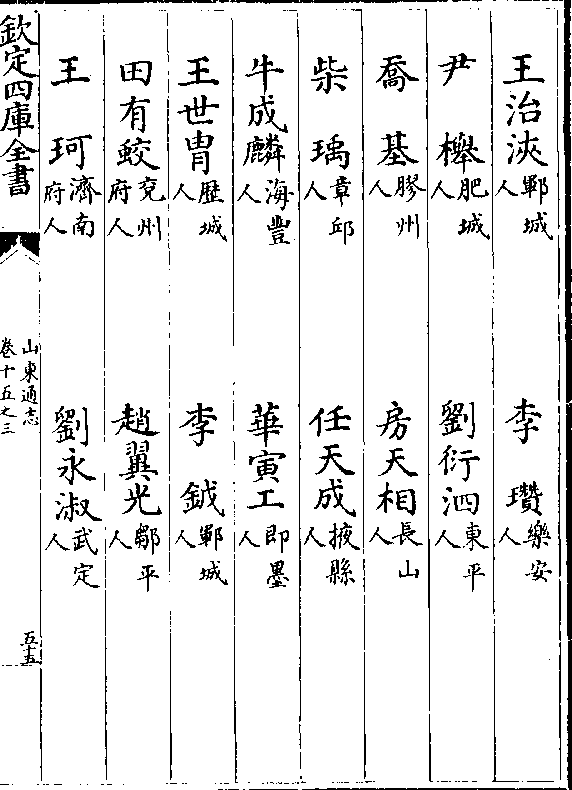 王治浹鄆城人　李瓚樂安人
尹樨肥城人　劉衍泗東平人
喬基膠州人　房天相長山人
柴瑀章邱人　任天成掖縣人
牛成麟海豐人　華寅工即墨人
王世胄歷城人　李鉞鄆城人
田有鮫兗州府人　趙翼光鄒平人
王珂濟南府人　劉永淑武定人
欽定四庫全書
山東通志
卷十五之三
五十五